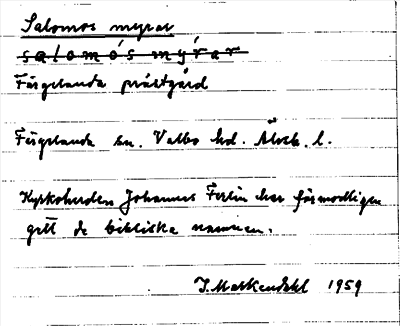 Salomos myrar
salomós mýrar
Färgelanda prästgård
Färgelanda sn. Valbo hd. Älvsb. l.
Kyrkoherden Johannes Ferlin har förmodligen
gett de bibliska namnen.